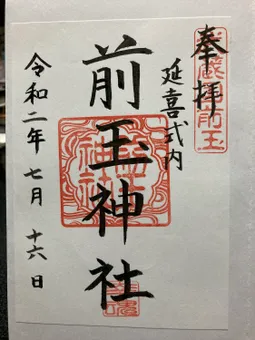 奉拝
延喜式内
前玉神社
令和二年七月十六日